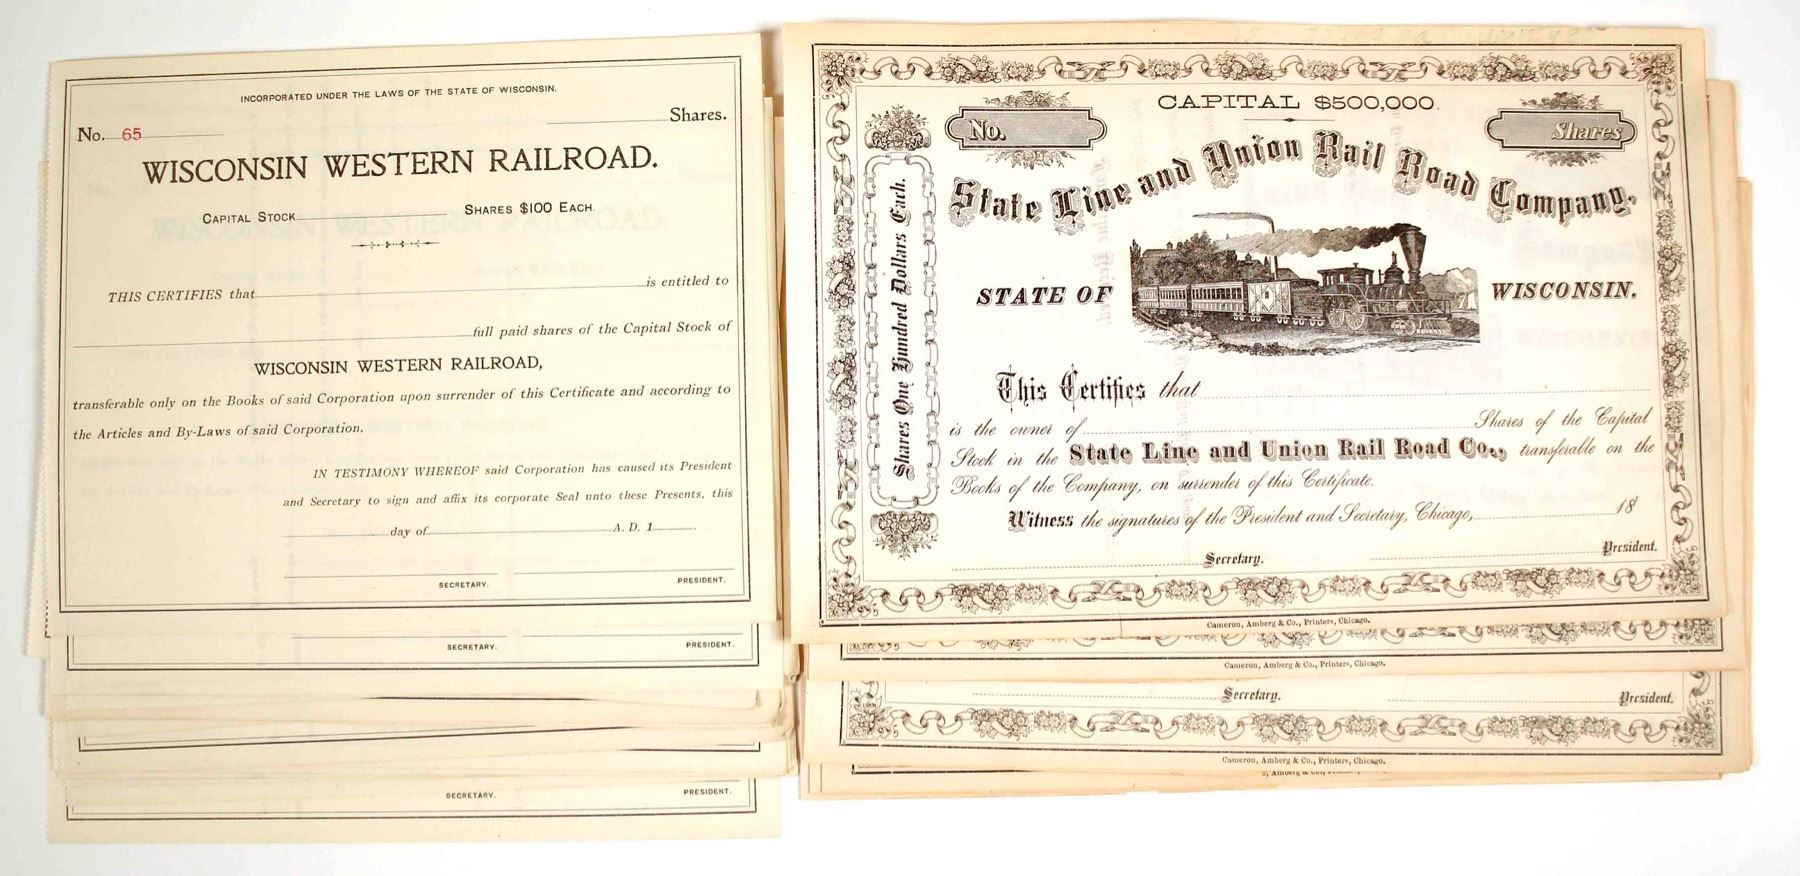 INCORPORATED UNDER THE LAWS OF THE STATE OF WISCONSIN.
No. 65 Shares.
WISCONSIN WESTERN RAILROAD.
CAPITAL STOCK SHARES $100 EACH.
THIS CERTIFIES that is entitled to
full paid shares of the Capital Stock of
WISCONSIN WESTERN RAILROAD,
transferable only on the Books of said Corporation upon surrender of this Certificate and according to
the Articles and By-Laws of said Corporation.
IN TESTIMONY WHEREOF said Corporation has caused its President
and Secretary to sign and affix its corporate Seal unto these Presents, this
day of A. D. 1 .
SECRETARY. PRESIDENT.
SECRETARY. PRESIDENT.
SECRETARY. PRESIDENT.
CAPITAL $500,000.
No. Shares
State Line and Union Rail Road Company.
STATE OF WISCONSIN.
Shares One Hundred Dollars Each.
This Certifies that
is the owner of Shares of the Capital
Stock in the State Line and Union Rail Road Co., transferable on the
Books of the Company, on surrender of this Certificate.
Witness the signatures of the President and Secretary, Chicago, 18
Secretary. President.
Cameron, Amberg & Co., Printers, Chicago.
Cameron, Amberg & Co., Printers, Chicago.
Secretary. President.
Cameron, Amberg & Co., Printers, Chicago.